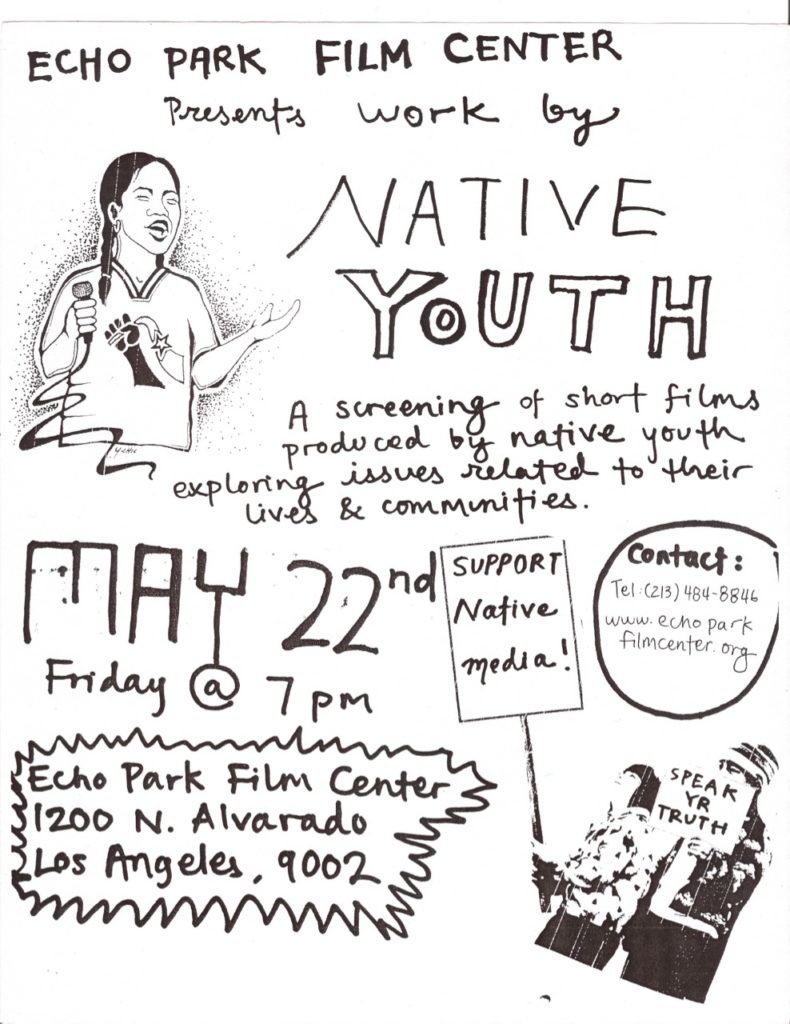 ECHO PARK FILM CENTER
Presents work by
NATIVE
YOUTH
A screening of short films
produced by native youth
exploring issues related to their
lives & communities.
MAY 22nd
Friday @ 7 pm
SUPPORT
Native
media!
Contact:
Tel: (213) 484-8846
www.echopark
filmcenter.org
Echo Park Film Center
1200 N. Alvarado
Los Angeles, 9002
SPEAK
YR
TRUTH